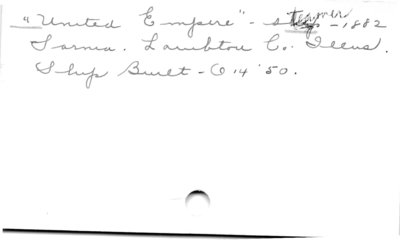 "United Empire" - steamer - 1882
Sarnia. Lambton Co. Illus.
Ship Built - O 14 '50.